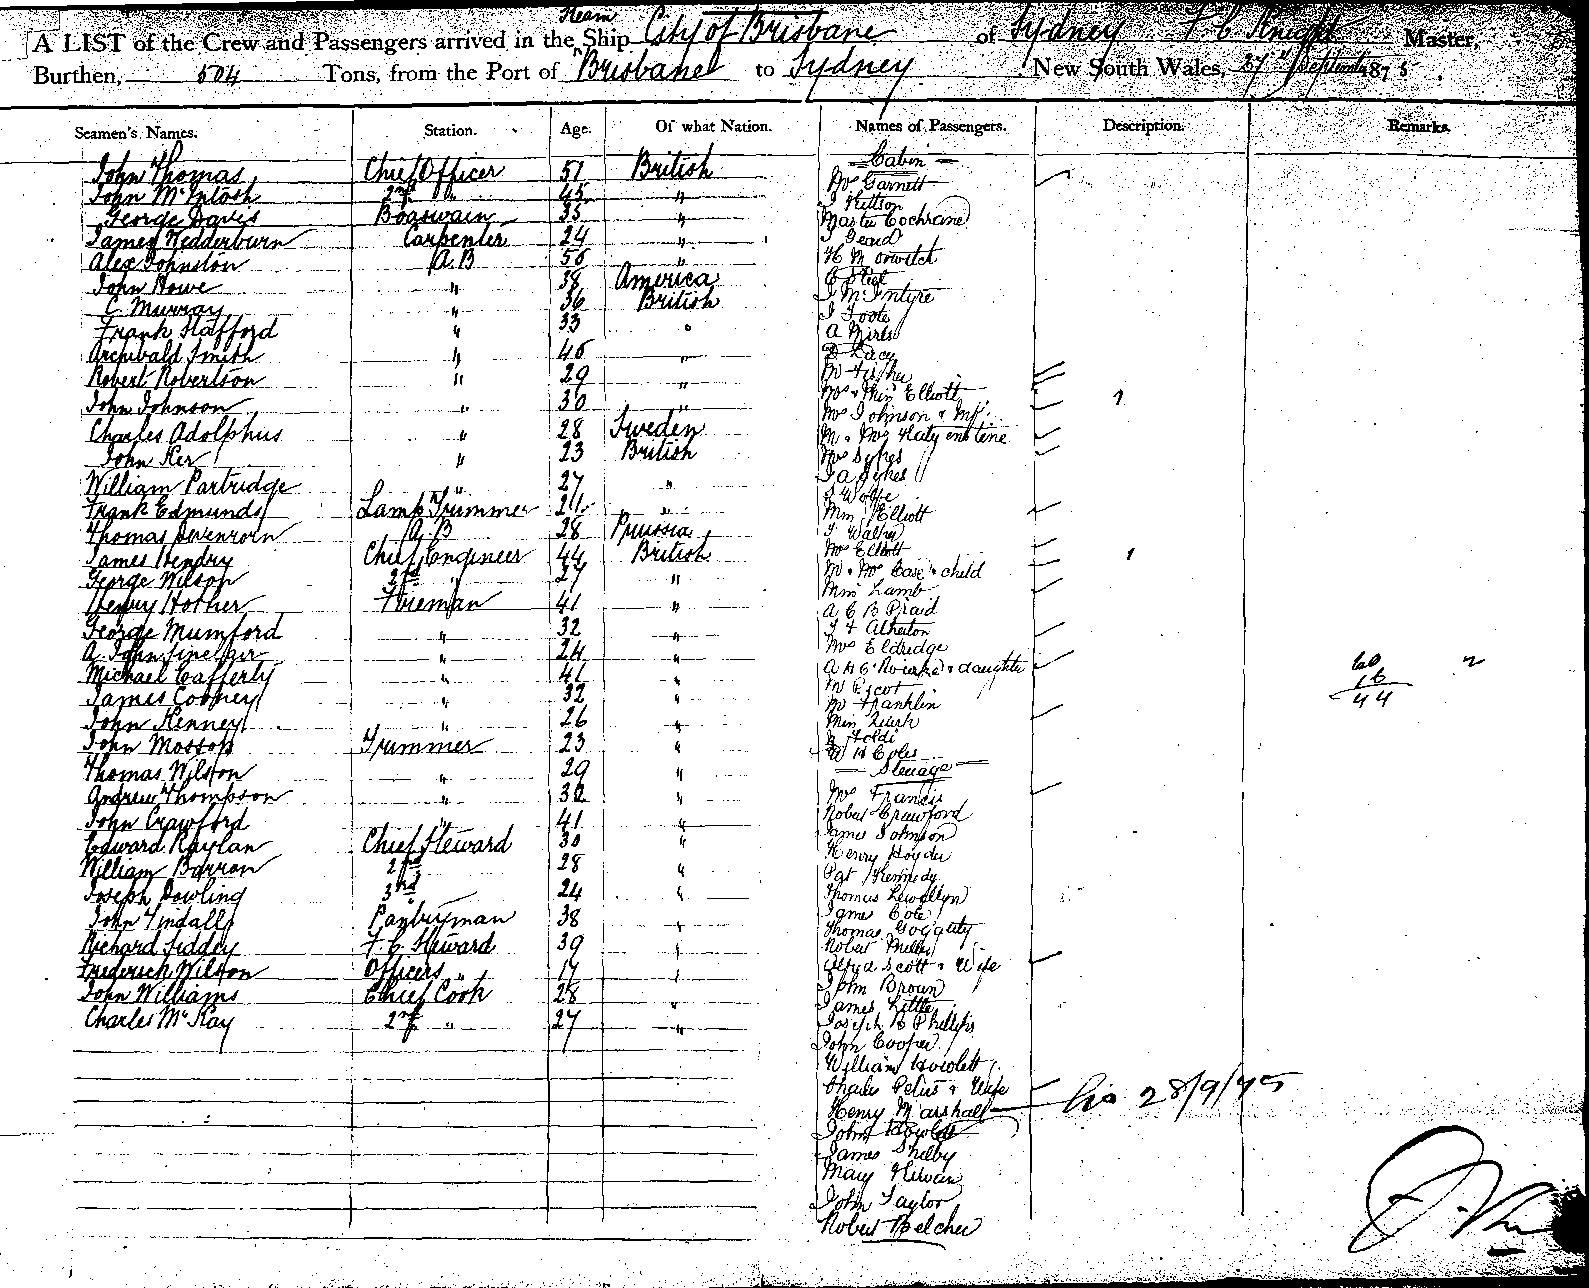 A LIST of the Crew and Passengers arrived in the Steam Ship City of Brisbane of Sydney P C Knight Master,
Burthen, 504 Tons, from the Port of Brisbane to Sydney New South Wales, 27th September 1875
Seamen's Names. Station. Age. Of what Nation. Names of Passengers. Description. Remarks.
John Thomas Chief Officer 51 British
John McIntosh 2nd " 45 "
George Davis Boaswain 35 "
James Hedderburn Carpenter 24 "
Alex Johnston A.B 56 "
John Howe " 38 America
C Murray " 36 British
Frank Stafford " 33 "
Archibald Smith " 45 "
Robert Robertson " 29 "
John Johnson " 30 "
Charles Adolphus " 28 Sweden
John Ker " 23 British
William Partridge " 27 "
Frank Edmunds Lamp Trimmer 21 "
Thomas A.B 28 Prussia
James Hendry Chief Engineer 44 British
George Wilson 2nd " 27 "
Henry Fireman 41 "
George Mumford " 32 "
A. John Sinclair " 24 "
Michael Cafferty " 41 "
James Cooney " 32 "
John Kenney " 26 "
John Mossop Trimmer 23 "
Thomas Wilson " 29 "
Andrew Thompson " 32 "
John Crawford " 41 "
Edward Kaylan Chief Steward 30 "
William Barron 2nd 28 "
Joseph Dowling 3rd " 24 "
John Tyndall Pantryman 38 "
Richard Fiddey F. C. Steward 39 "
Frederick Wilson Officers " 17 "
John Williams Chief Cook 28 "
Charles McKay 2nd " 27 "
Cabin
Mrs Garnett
J Kitson
Master Cochrane
J Geard
H M
C Steel
J McIntyre
J Foote
A
D Lacy
Mr Fisher
Mrs & Miss Elliott 1
Mrs Johnson &
M & Mrs
Mrs Sykes
J A Sykes
J Wolfe
Miss Elliott
J Walker
Mrs Elliott
M & Mrs Case & child 1
Miss Lamb
A C B Praid
J F Atherton
Mrs Eldridge
A H & daughter 60
M Pzcot 16
M Franklin 44
Miss
W H Coles
Steerage
Mrs Francis
Robert Crawford
James Johnson
Henry Hoyder
Pat Kennedy
Thomas Lewellyn
James Cote
Thomas Goggatty
Robert
Alfred Scott & Wife
John Brown
James Little
Joseph B Phillips
John Cooper
William Howlett
Charles & Wife
Henry Marshall 28/9/75
John
James Shelby
Mary
John Taylor
Robert Belcher